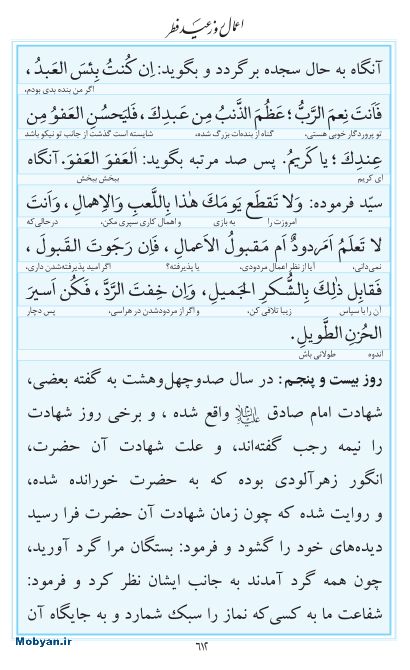 اعمال روز عید فطر
آنگاه به حال سجده برگردد و بگوید: اِن كُنتُ بِئسَ العَبدُ ،
اگر من بنده بدی بودم،
فَاَنتَ نِعمَ الرَّبُّ؛ عَظُمَ الذَّنبُ مِن عَبدِكَ ، فَليَحسُنِ العَفوُ مِن
تو پروردگار خوبی هستی، گناه از بنده‌ات بزرگ شده، شایسته است گذشت از جانب تو نیکو باشد
عِندِكَ ؛ يا كَريمُ. پس صد مرتبه بگوید: اَلعَفوَ العَفوَ. آنگاه
ای کریم ببخش ببخش
سیّد فرموده: وَلا تَقطَع يَومَكَ هٰذا بِاللَّعِبِ وَالاِهمالِ ، وَاَنتَ
امروزت را به بازی و اهمال کاری سپری مکن، درحالی‌که
لا تَعلَمُ اَمَردودٌ اَم مَقبولُ الاَعمالِ ، فَاِن رَجَوتَ القَبولَ ،
نمی‌دانی، آیا از نظر اعمال مردودی، یا پذیرفته؟ اگر امید پذیرفته‌شدن داری،
فَقابِل ذٰلِكَ بِالشُّكرِ الجَميلِ، وَاِن خِفتَ الرَّدَّ ، فَكُن اَسيرَ
آن را با سپاس زیبا تلافی کن، و اگر از مردودشدن در هراسی، پس دچار
الحُزنِ الطَّويلِ.
اندوه طولانی باش
روز بیست و پنجم: در سال صدوچهل‌وهشت به گفته بعضی،
شهادت امام صادق علیه‌السلام واقع شده ، و برخی روز شهادت
را نیمه رجب گفته‌اند، و علت شهادت آن حضرت،
انگور زهرآلودی بوده که به حضرت خورانده شده،
و روایت شده که چون زمان شهادت آن حضرت فرا رسید
دیده‌های خود را گشود و فرمود: بستگان مرا گرد آورید،
چون همه گرد آمدند به جانب ایشان نظر کرد و فرمود:
شفاعت ما به کسی‌که نماز را سبک شمارد و به جایگاه آن
٦١٢
Mobyan.ir